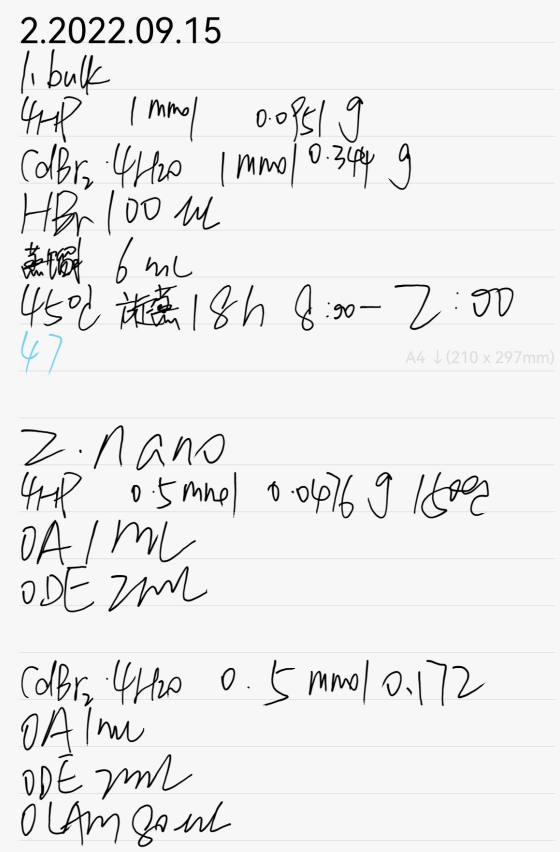 2.2022.09.15
1. bulk
4HP 1 mmol 0.0951 g
CdBr₂·4H₂O 1 mmol 0.344 g
HBr 100 uL
6 mL
45℃ 18h 8:00 - 2:00
47
A4 ↓(210 x 297mm)
2. nano
4HP 0.5 mmol 0.0476 g 150℃
OA 1 mL
ODE 2mL
CdBr₂·4H₂O 0.5 mmol 0.172
OA 1mL
ODE 2mL
OLAM 80 uL